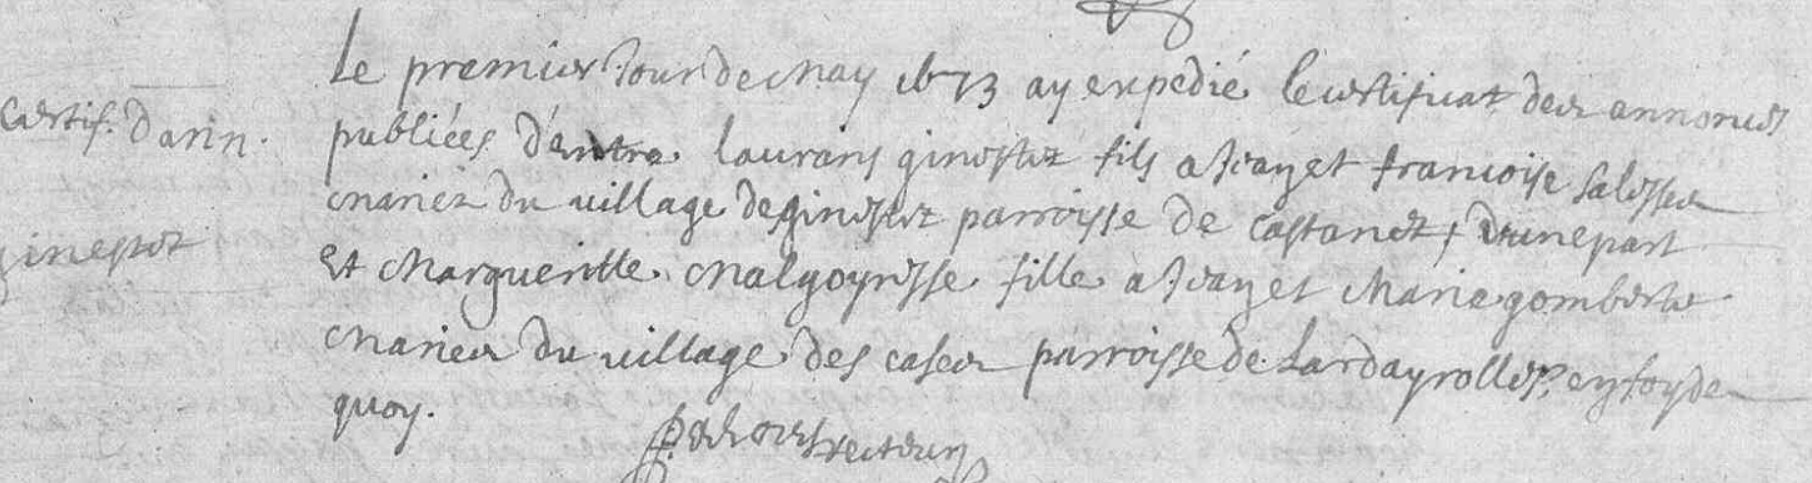 Le premier Jour de may 1673 ay expedié le certificat des annonces
Certif. dann.
publiées d'entre laurans ginestet fils a Jean et francoise salesses
mariez du village de ginestet parroisse de castanet, d'une part
ginestet
Et Margueritte Malgoyresse fille a Jean et Marie gomberte
Maries du village des cases parroisse de Lardayrolles, en foy de
quoy.
recteur